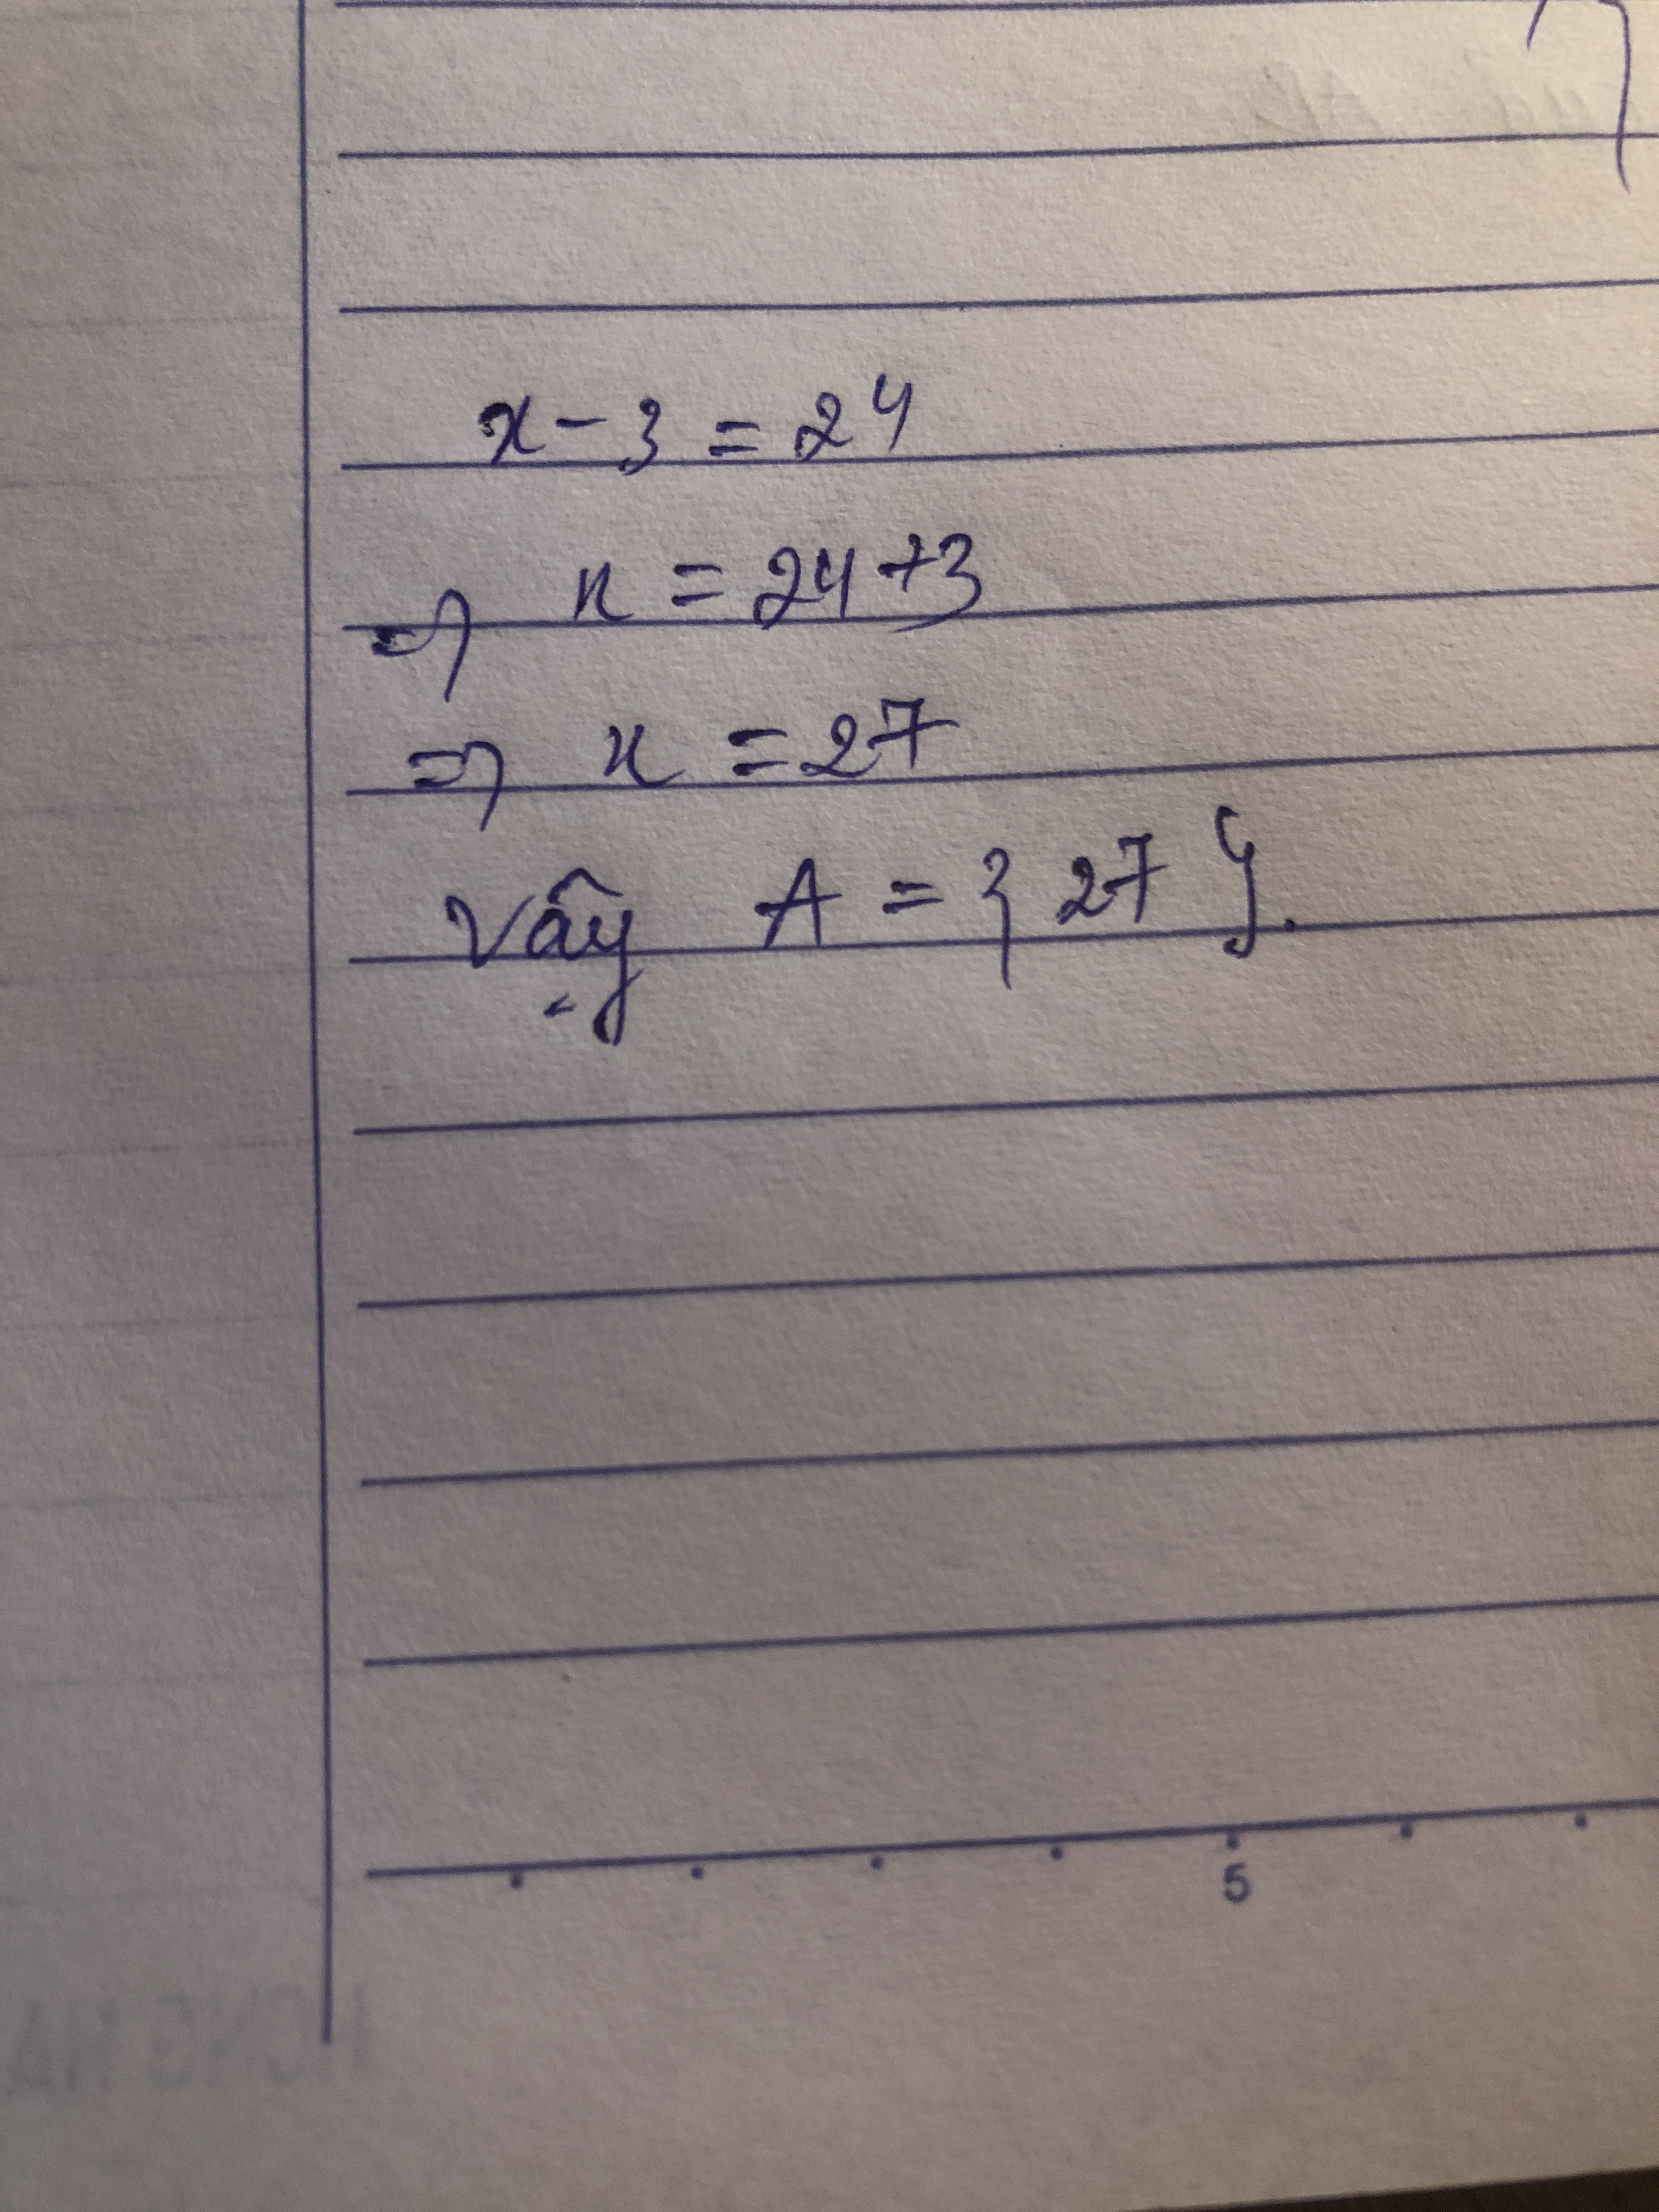 x - 3 = 24
=> x = 24 + 3
=> x = 27
Vậy A = { 27 }.
5